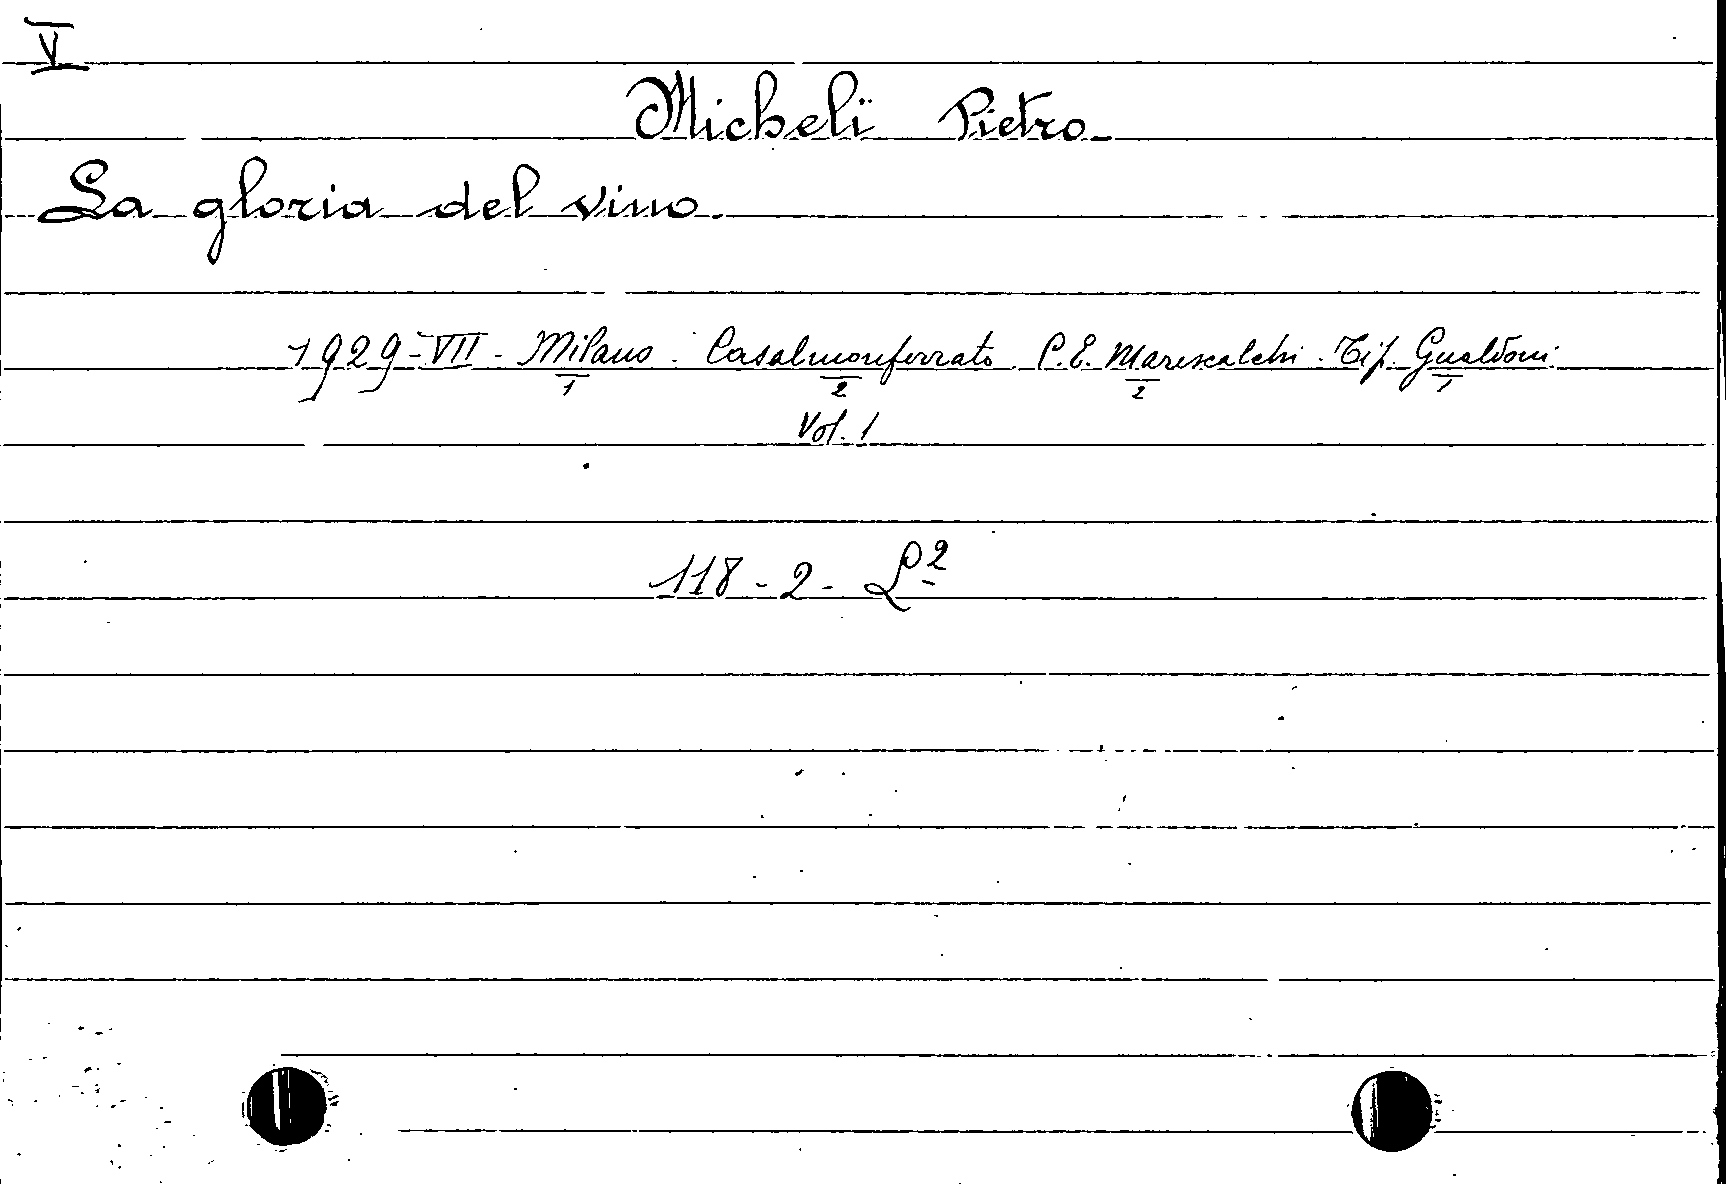 V
Micheli Pietro.
La gloria del vino.
1929-VII - Milano - Casalmonferrato C.E. Marescalchi - Tip. Gualdoni.
1 2 2 1
Vol. 1
118 - 2 - L 2